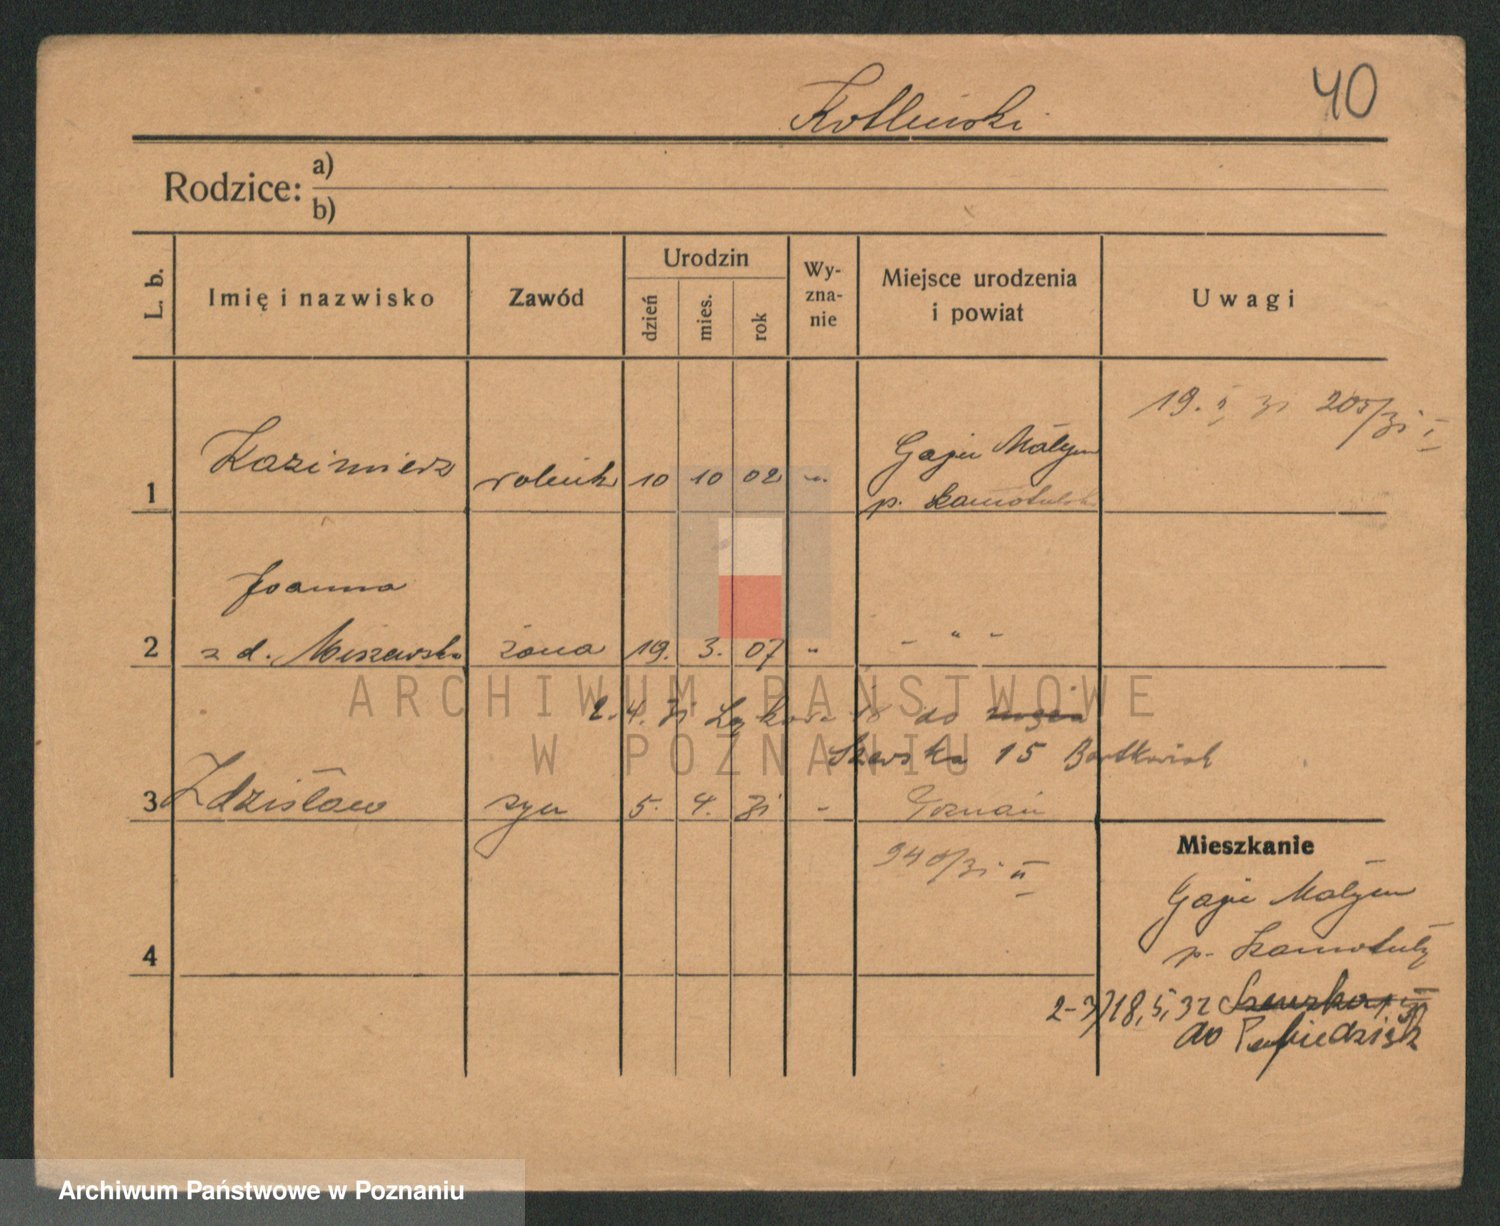 40
Kotliński
Rodzice: a)
b)
L. b.
Imię i nazwisko
Zawód
Urodzin
dzień
mies.
rok
Wy-
zna-
nie
Miejsce urodzenia
i powiat
Uwagi
19. 31 205/31 I
1 Kazimierz rolnik 10 10 02 Gaju Małym
p. Szamotulski
Joanna
2 z d. żona 19. 3. 07 " - " -
2. 4. 31 18 do
Szewska 15
3 Zdzisław syn 5. 4. 31 - Poznań
940/31 II
4
Mieszkanie
Gaju Małym
p. Szamotuły
2-3/18.5.32
do Pobiedzisk
ARCHIWUM PAŃSTWOWE
W POZNANIU
Archiwum Państwowe w Poznaniu